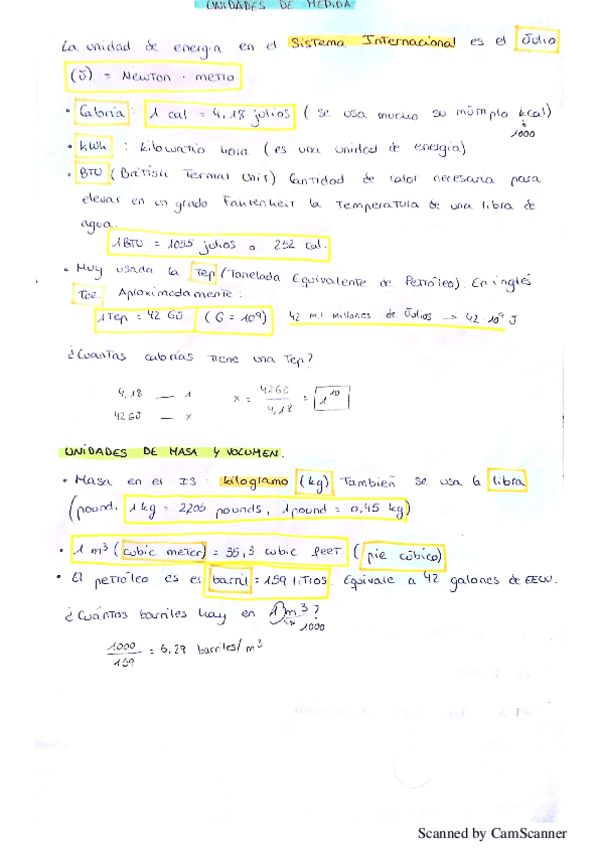 UNIDADES DE MEDIDA
La unidad de energia en el Sistema Internacional es el Julio
(J) = Newton · metro
• Caloría: 1 cal = 4,18 julios ( se usa mucho su múltiplo kcal)
1000
• kWh : kilowatio hora ( es una unidad de energia)
• BTU ( British Termal Unit) Cantidad de calor necesaria para
elevar en un grado Fahrenheit la temperatura de una libra de
agua.
1 BTU = 1055 julios o 252 cal.
• Muy usada la Tep (Tonelada Equivalente de Petróleo). En inglés
Toe. Aproximadamente:
1 Tep = 42 GJ ( G = 10⁹) 42 mil millones de Julios → 42 10⁹ J
¿Cuantas calorías tiene una Tep?
4,18 — 1
42 GJ — x
x = 42GJ / 4,18 = 1¹⁰
UNIDADES DE MASA Y VOLUMEN.
• Masa en el IS : kilogramo (kg) También se usa la libra
(pound. 1 kg = 2,205 pounds, 1 pound = 0,45 kg)
• 1 m³ ( cubic meter) = 35,3 cubic feet ( pie cúbico)
• El petróleo es el barril = 159 litros. Equivale a 42 galones de EEUU.
¿Cuántos barriles hay en 1 m³?
1000
1000 / 159 = 6,29 barriles/m³
Scanned by CamScanner